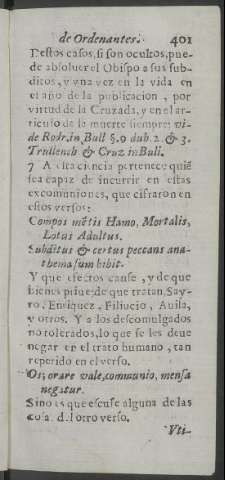 de Ordenantes. 401
Destos casos, si son ocultos, pue-
de absoluer el Obispo a sus sub-
ditos, y vna vez en la vida en
el año de la publicacion, por
virtud de la Cruzada, y en el ar-
ticulo de la muerte siempre: vi-
de Rodr. in Bull §. 9 dub. 2 & 3.
Trullench & Cruz in Bull.
7 A esta ciencia pertenece quié
sea capaz de incurrir en estas
excomuniones, que cifraron en
estos versos:
Compos mētis Homo, Mortalis,
Lotus Adultus.
Subditus & certus peccans ana-
thema sum bibit.
Y que efectos cause, y de que
bienes priue: de que tratan, Say-
ro, Enriquez, Filiucio, Auila,
y otros. Y a los descomulgados
no tolerados, lo que se les deue
negar en el trato humano, tan
reperido en el verso.
Os, orare vale, communio, mensa
negatur.
Sino es que escuse alguna de las
cosa del otro verso.
Vti-